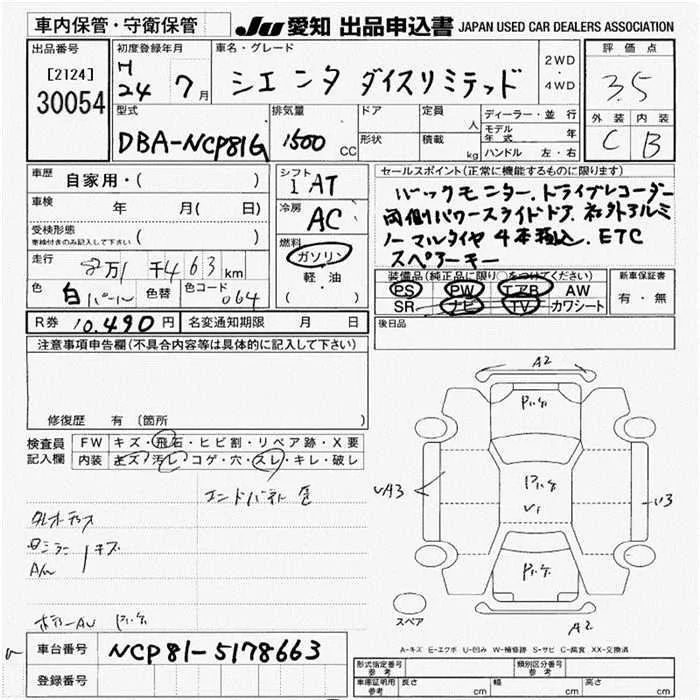 車内保管・守衛保管
JU 愛知 出品申込書 JAPAN USED CAR DEALERS ASSOCIATION
出品番号
[2124]
30054
初度登録年月
H
24 7 月
車名・グレード
シエンタ ダイスリミテッド
2WD
・
4WD
評価点
3.5
外装 内装
C B
型式
DBA-NCP81G
排気量
1500 CC
ドア
形状
定員
人
積載
kg
ディーラー・並行
モデル年式 年
ハンドル 左・右
車歴 自家用・( )
車検 年 月( 日)
受検形態
車検付きのみ記入して下さい ( )
走行 8万1千463km
色 白パール 色替 色コード 064
シフト
1AT
冷房
AC
燃料
ガソリン
軽・油
( )
セールスポイント(正常に機能するものに限ります)
バックモニター.ドライブレコーダー
両側パワースライドドア.社外アルミ
ノーマルタイヤ4本積込.ETC
スペアーキー
装備品(純正品に限り○をつけてください)
PS PW エアB AW
SR ナビ TV カワシート
新車保証書
有・無
R券 10,490円 名変通知期限 月 日
後日品
注意事項申告欄(不具合内容等は具体的に記入して下さい)
修復歴 有 〔箇所 〕
検査員
記入欄
FW キズ・飛石・ヒビ割・リペア跡・X要
内装 キズ・汚レ・コゲ・穴・スレ・キレ・破レ
キズ
A2
UA3
U3
A2
スペア
A-キズ E-エクボ U-凹み W-補修跡 S-サビ C-腐食 XX-交換済
車台番号 NCP81-5178663
登録番号
型式指定番号
参考
類別区分番号
参考
車庫証明用
参考
長さ cm 幅 cm 高さ cm